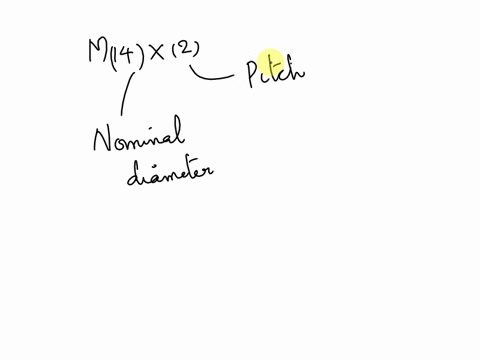 M(14) X (2)
Pitch
Nominal
diameter